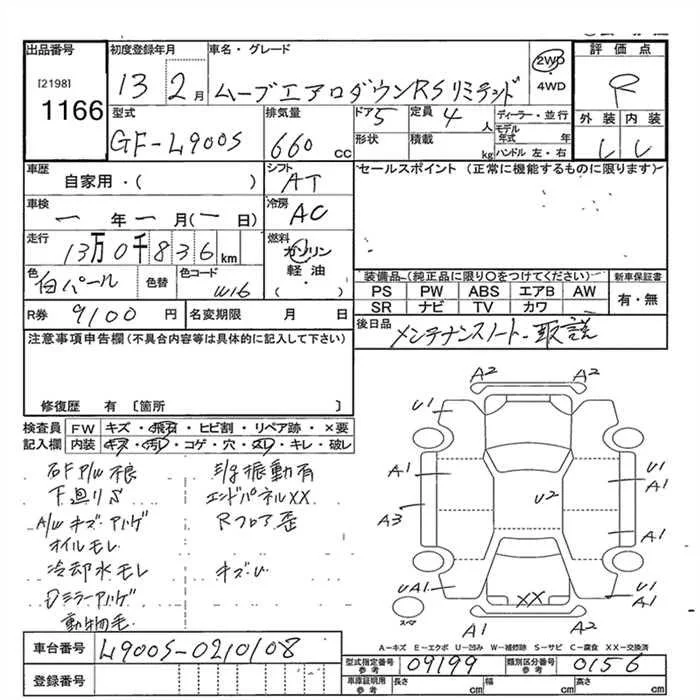 出品番号
[2198]
1166
初度登録年月
13 2月
車名・グレード
ムーブエアロダウンRSリミテッド
2WD
・
4WD
評価点
R
外装 内装
型式
GF-L900S
排気量
660 cc
ドア
5
定員
4 人
形状
積載
kg
ディーラー・並行
モデル
年式 年
ハンドル 左・右
車歴
自家用・( )
シフト
AT
車検
一 年 一 月(一 日)
冷房
AC
走行
13万0千836 km
燃料
ガソリン
軽油・
( )
色
白パール
色替
色コード
W16
R券 9100 円
名変期限 月 日
セールスポイント (正常に機能するものに限ります)
装備品(純正品に限り○をつけてください)
PS PW ABS エアB AW
SR ナビ TV カワ
新車保証書
有・無
後日品
メンテナンスノート・取説
注意事項申告欄(不具合内容等は具体的に記入して下さい)
修復歴 有 〔箇所 〕
検査員
記入欄
FW キズ・飛石・ヒビ割・リペア跡・×要
内装 キズ・汚れ・コゲ・穴・スレ・キレ・破レ
右F P/W不良
下廻りS
A/W キズ・ハゲ
オイルモレ
冷却水モレ
Dミラーハゲ
動物毛
振動有
エンドパネルXX
Rフロア歪
キズ・U
A2
A2
U1
A1
A3
U2
U1
A1
A1
UA1
UA1
XX
A1
A2
スペア
A-キズ E-エクボ U-凹み W-補修跡 S-サビ C-腐食 XX-交換済
車台番号
L900S-0210108
登録番号
型式指定番号
参考
09199
類別区分番号
参考
0156
車庫証明用
参考
長さ cm
幅 cm
高さ cm